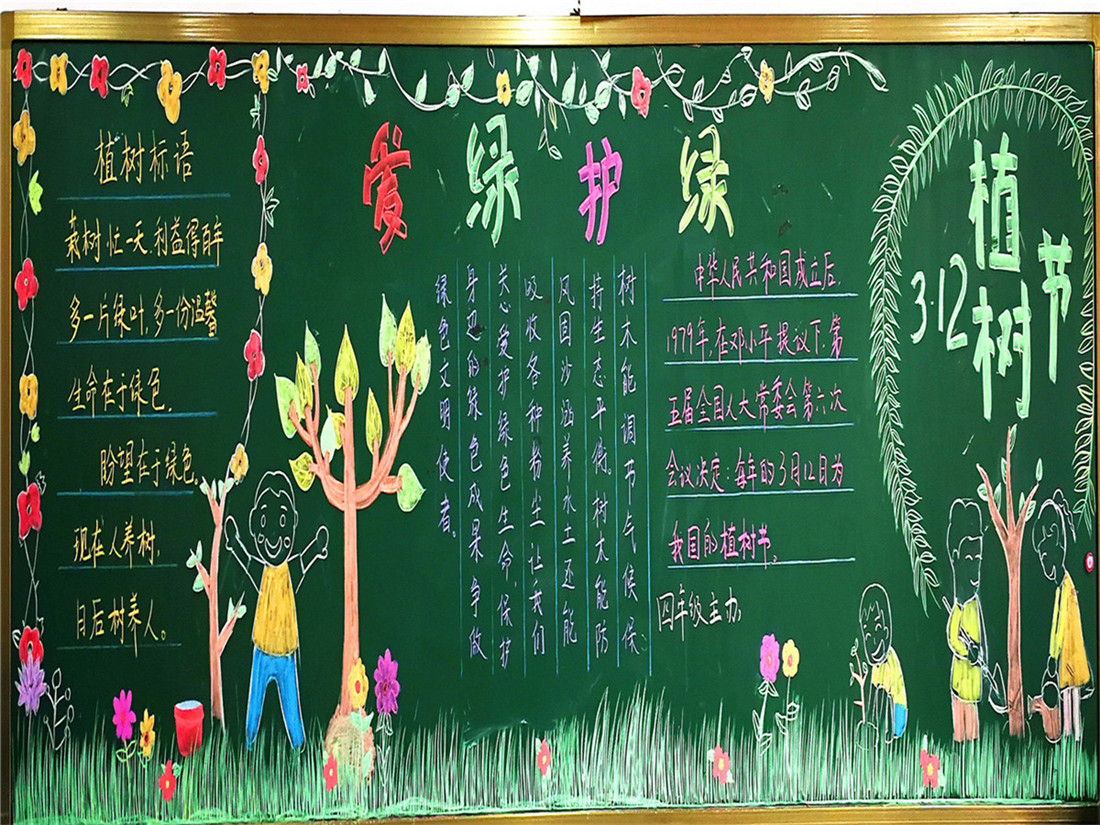 植树标语
栽树忙一天,利益得百年
多一片绿叶,多一份温馨
生命在于绿色,
盼望在于绿色
现在人养树,
日后树养人。
爱绿护绿
树木能调节气候保、
持生态平衡。树木能防
风固沙涵养水土还能
吸收各种粉尘让我们
关心爱护绿色生命,保护
身边的绿色成果争做
绿色文明使者。
中华人民共和国成立后,
1979年,在邓小平提议下,第
五届全国人大常委会第六次
会议决定:每年的3月12日为
我国的植树节。
四年级主办
3.12
植树节